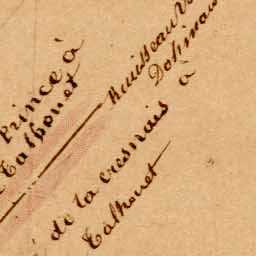 Prince à
Talhouet
Ruisseau
de la cresnais à
Talhouet